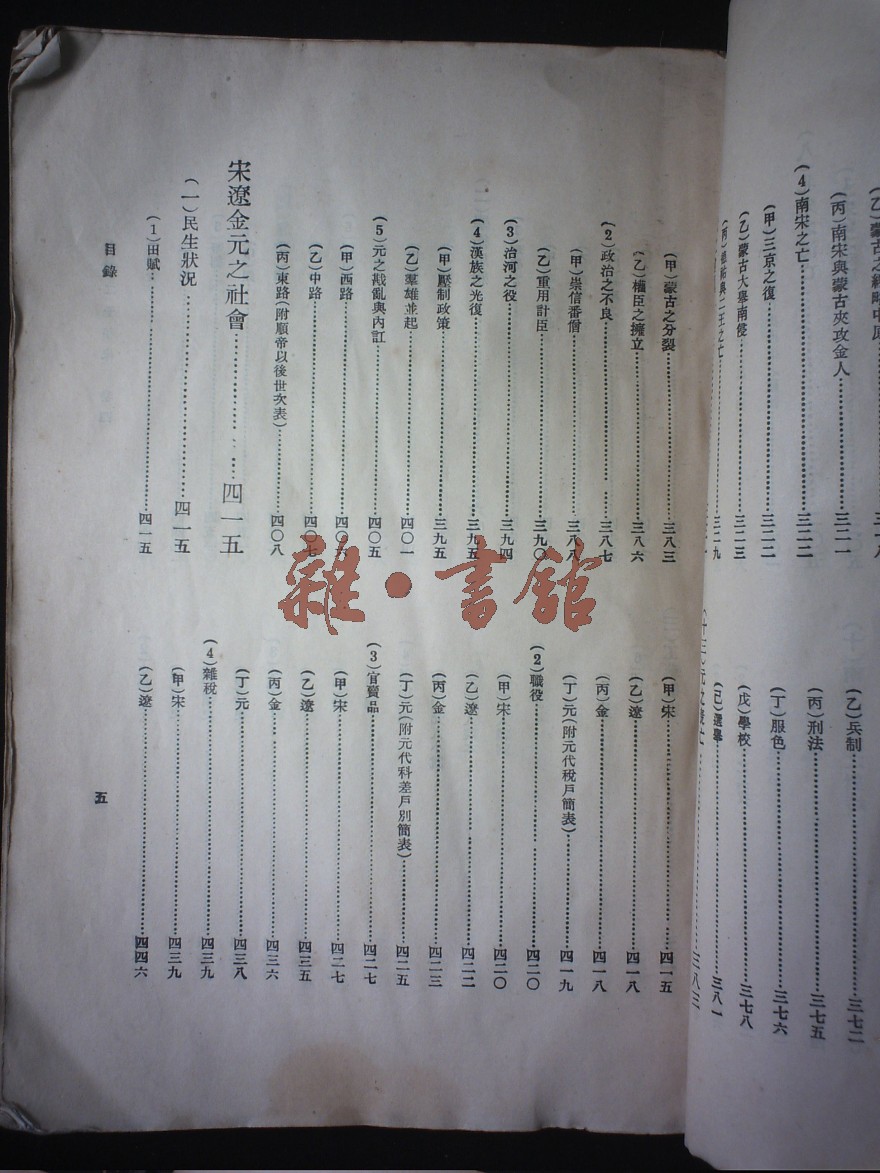 (丙)南宋與蒙古夾攻金人……三二一
(4)南宋之亡……三二二
(甲)三京之復……三二二
(乙)蒙古大舉南侵……三二三
(丙)德祐與二王之亡……三二九
(乙)兵制……三七二
(丙)刑法……三七五
(丁)服色……三七六
(戊)學校……三七八
(己)選舉……三八一
(十三)元之衰亡……三八三
(甲)蒙古之分裂……三八三
(乙)權臣之擁立……三八六
(2)政治之不良……三八七
(甲)崇信番僧……三八八
(乙)重用計臣……三九〇
(3)治河之役……三九四
(4)漢族之光復……三九五
(甲)壓制政策……三九五
(乙)羣雄並起……四〇一
(5)元之戡亂與內訌……四〇五
(甲)西路……四〇六
(乙)中路……四〇七
(丙)東路(附順帝以後世次表)……四〇八
宋遼金元之社會……四一五
(一)民生狀況……四一五
(1)田賦……四一五
(甲)宋……四一五
(乙)遼……四一八
(丙)金……四一八
(丁)元(附元代稅戶簡表)……四一九
(2)職役……四二〇
(甲)宋……四二〇
(乙)遼……四二二
(丙)金……四二三
(丁)元(附元代科差戶別簡表)……四二五
(3)官賣品……四二七
(甲)宋……四二七
(乙)遼……四三五
(丙)金……四三六
(丁)元……四三八
(4)雜稅……四三九
(甲)宋……四三九
(乙)遼……四四六
目錄
五
雜·書館